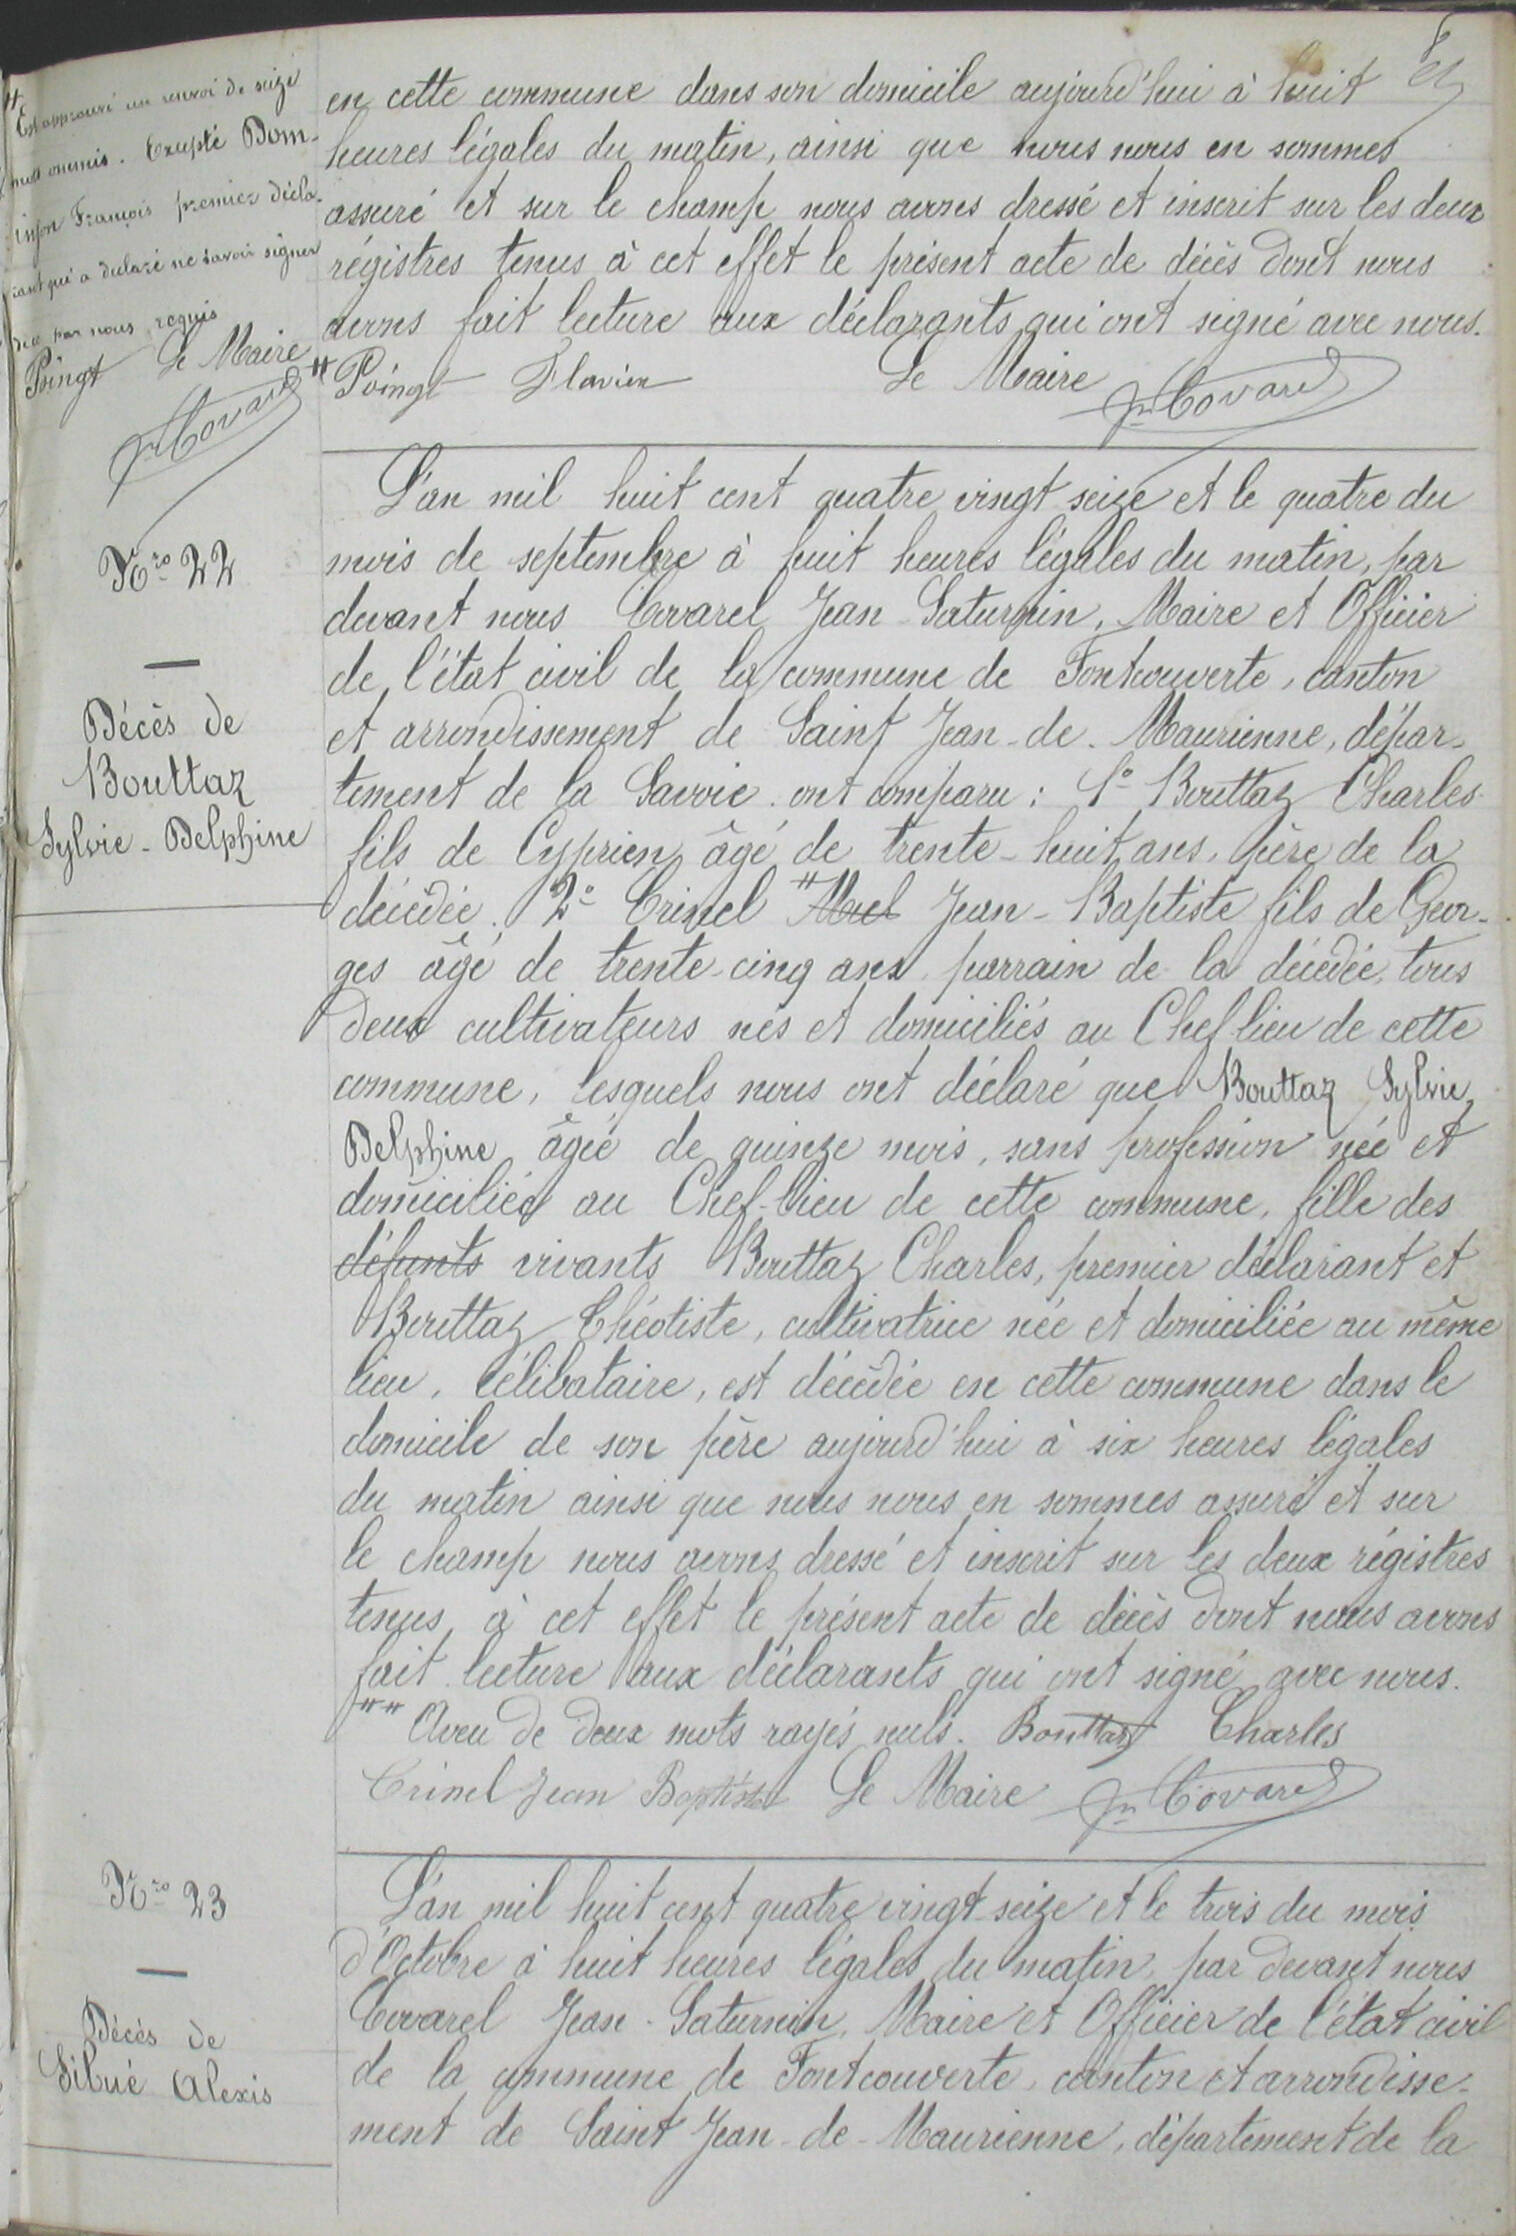 Est approuvé un renvoi de seize
mots ommis. Exepté Dom-
injon François premier décla-
rant qui a déclaré ne savoir signer
de ce par nous requis
Poingt Le Maire
Jn Covarel
en cette commune dans son domicile aujourd'hui à huit
heures légales du matin, ainsi que nous nous en sommes
assuré et sur le champ nous avons dressé et inscrit sur les deux
régistres tenus à cet effet le présent acte de décès dont nous
avons fait lecture aux déclarants qui ont signé avec nous.
# Poingt Flavien Le Maire Jn Covarel
Nro 22
Décès de
Bouttaz
Sylvie - Delphine
L'an mil huit cent quatre vingt seize et le quatre du
mois de septembre à huit heures légales du matin, par
devant nous Covarel Jean-Saturnin, Maire et Officier
de l'état civil de la commune de Fontcouverte, canton
et arrondissement de Saint Jean-de-Maurienne, dépar-
tement de la Savoie. ont comparu : 1° Bouttaz Charles
fils de Cyprien âgé de trente-huit ans, père de la
décédée. 2° Crinel # Jean-Baptiste fils de Geor-
ges âgé de trente-cinq ans parrain de la décédée, tous
deux cultivateurs nés et domiciliés au Chef-lieu de cette
commune, lesquels nous ont déclaré que Bouttaz Sylvie
Delphine âgée de quinze mois, sans profession née et
domiciliée au Chef-lieu de cette commune, fille des
défunts vivants Bouttaz Charles, premier déclarant et
Bouttaz Théotiste, cultivatrice née et domiciliée au même
lieu, Célibataire, est décédée en cette commune dans le
domicile de son père aujourd'hui à six heures légales
du matin ainsi que nous nous en sommes assuré et sur
le champ nous avons dressé et inscrit sur les deux régistres
tenus à cet effet le présent acte de décès dont nous avons
fait lecture aux déclarants qui ont signé avec nous.
## Aveu de deux mots rayés nuls. Bouttaz Charles
Crinel Jean Baptiste Le Maire Jn Covarel
Nro 23
Décès de
Sibué Alexis
L'an mil huit cent quatre vingt-seize et le trois du mois
d'Octobre à huit heures légales du matin, par devant nous
Covarel Jean-Saturnin, Maire et Officier de l'état civil
de la commune de Fontcouverte, canton et arrondisse-
ment de Saint Jean-de-Maurienne, département de la